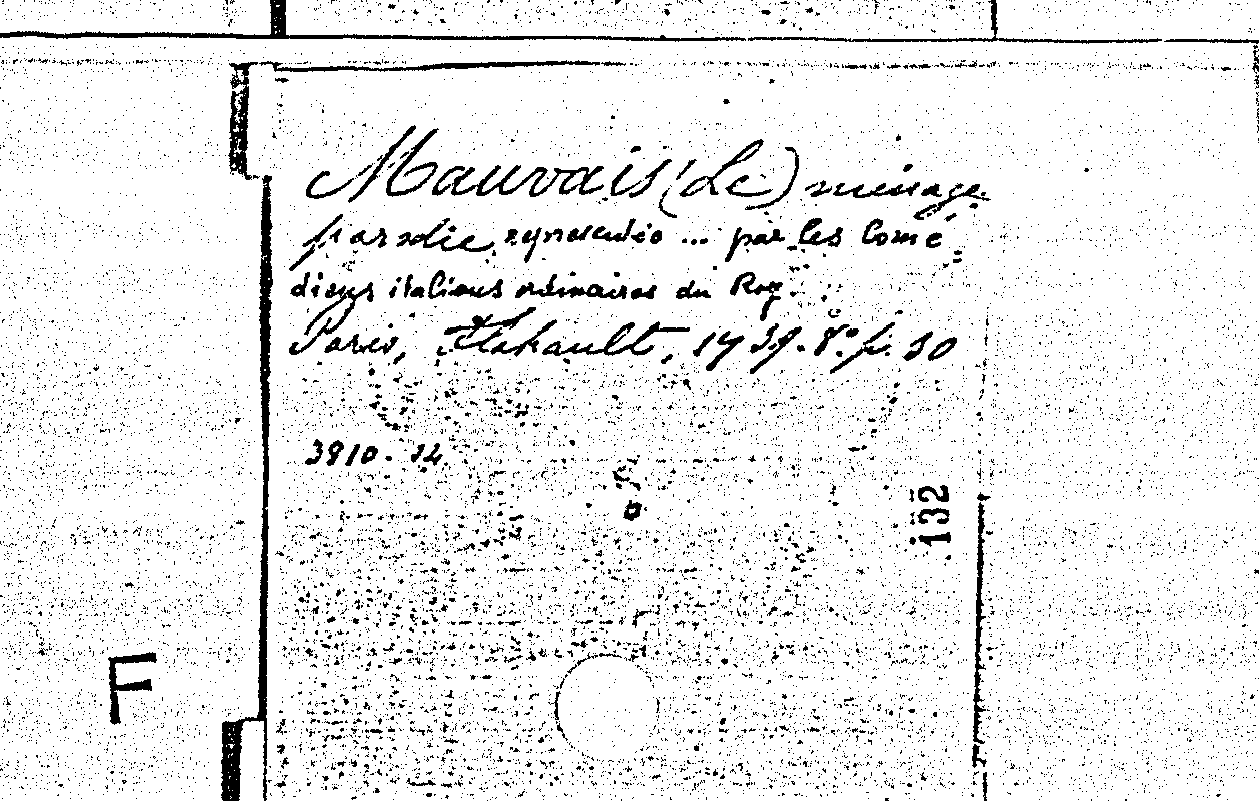 Mauvais (Le) ménage
parodie représentée ... par les Comé=
diens italiens ordinaires du Roy.
Paris, Flahault, 17 8.° p. 50
3810. 12
132
F